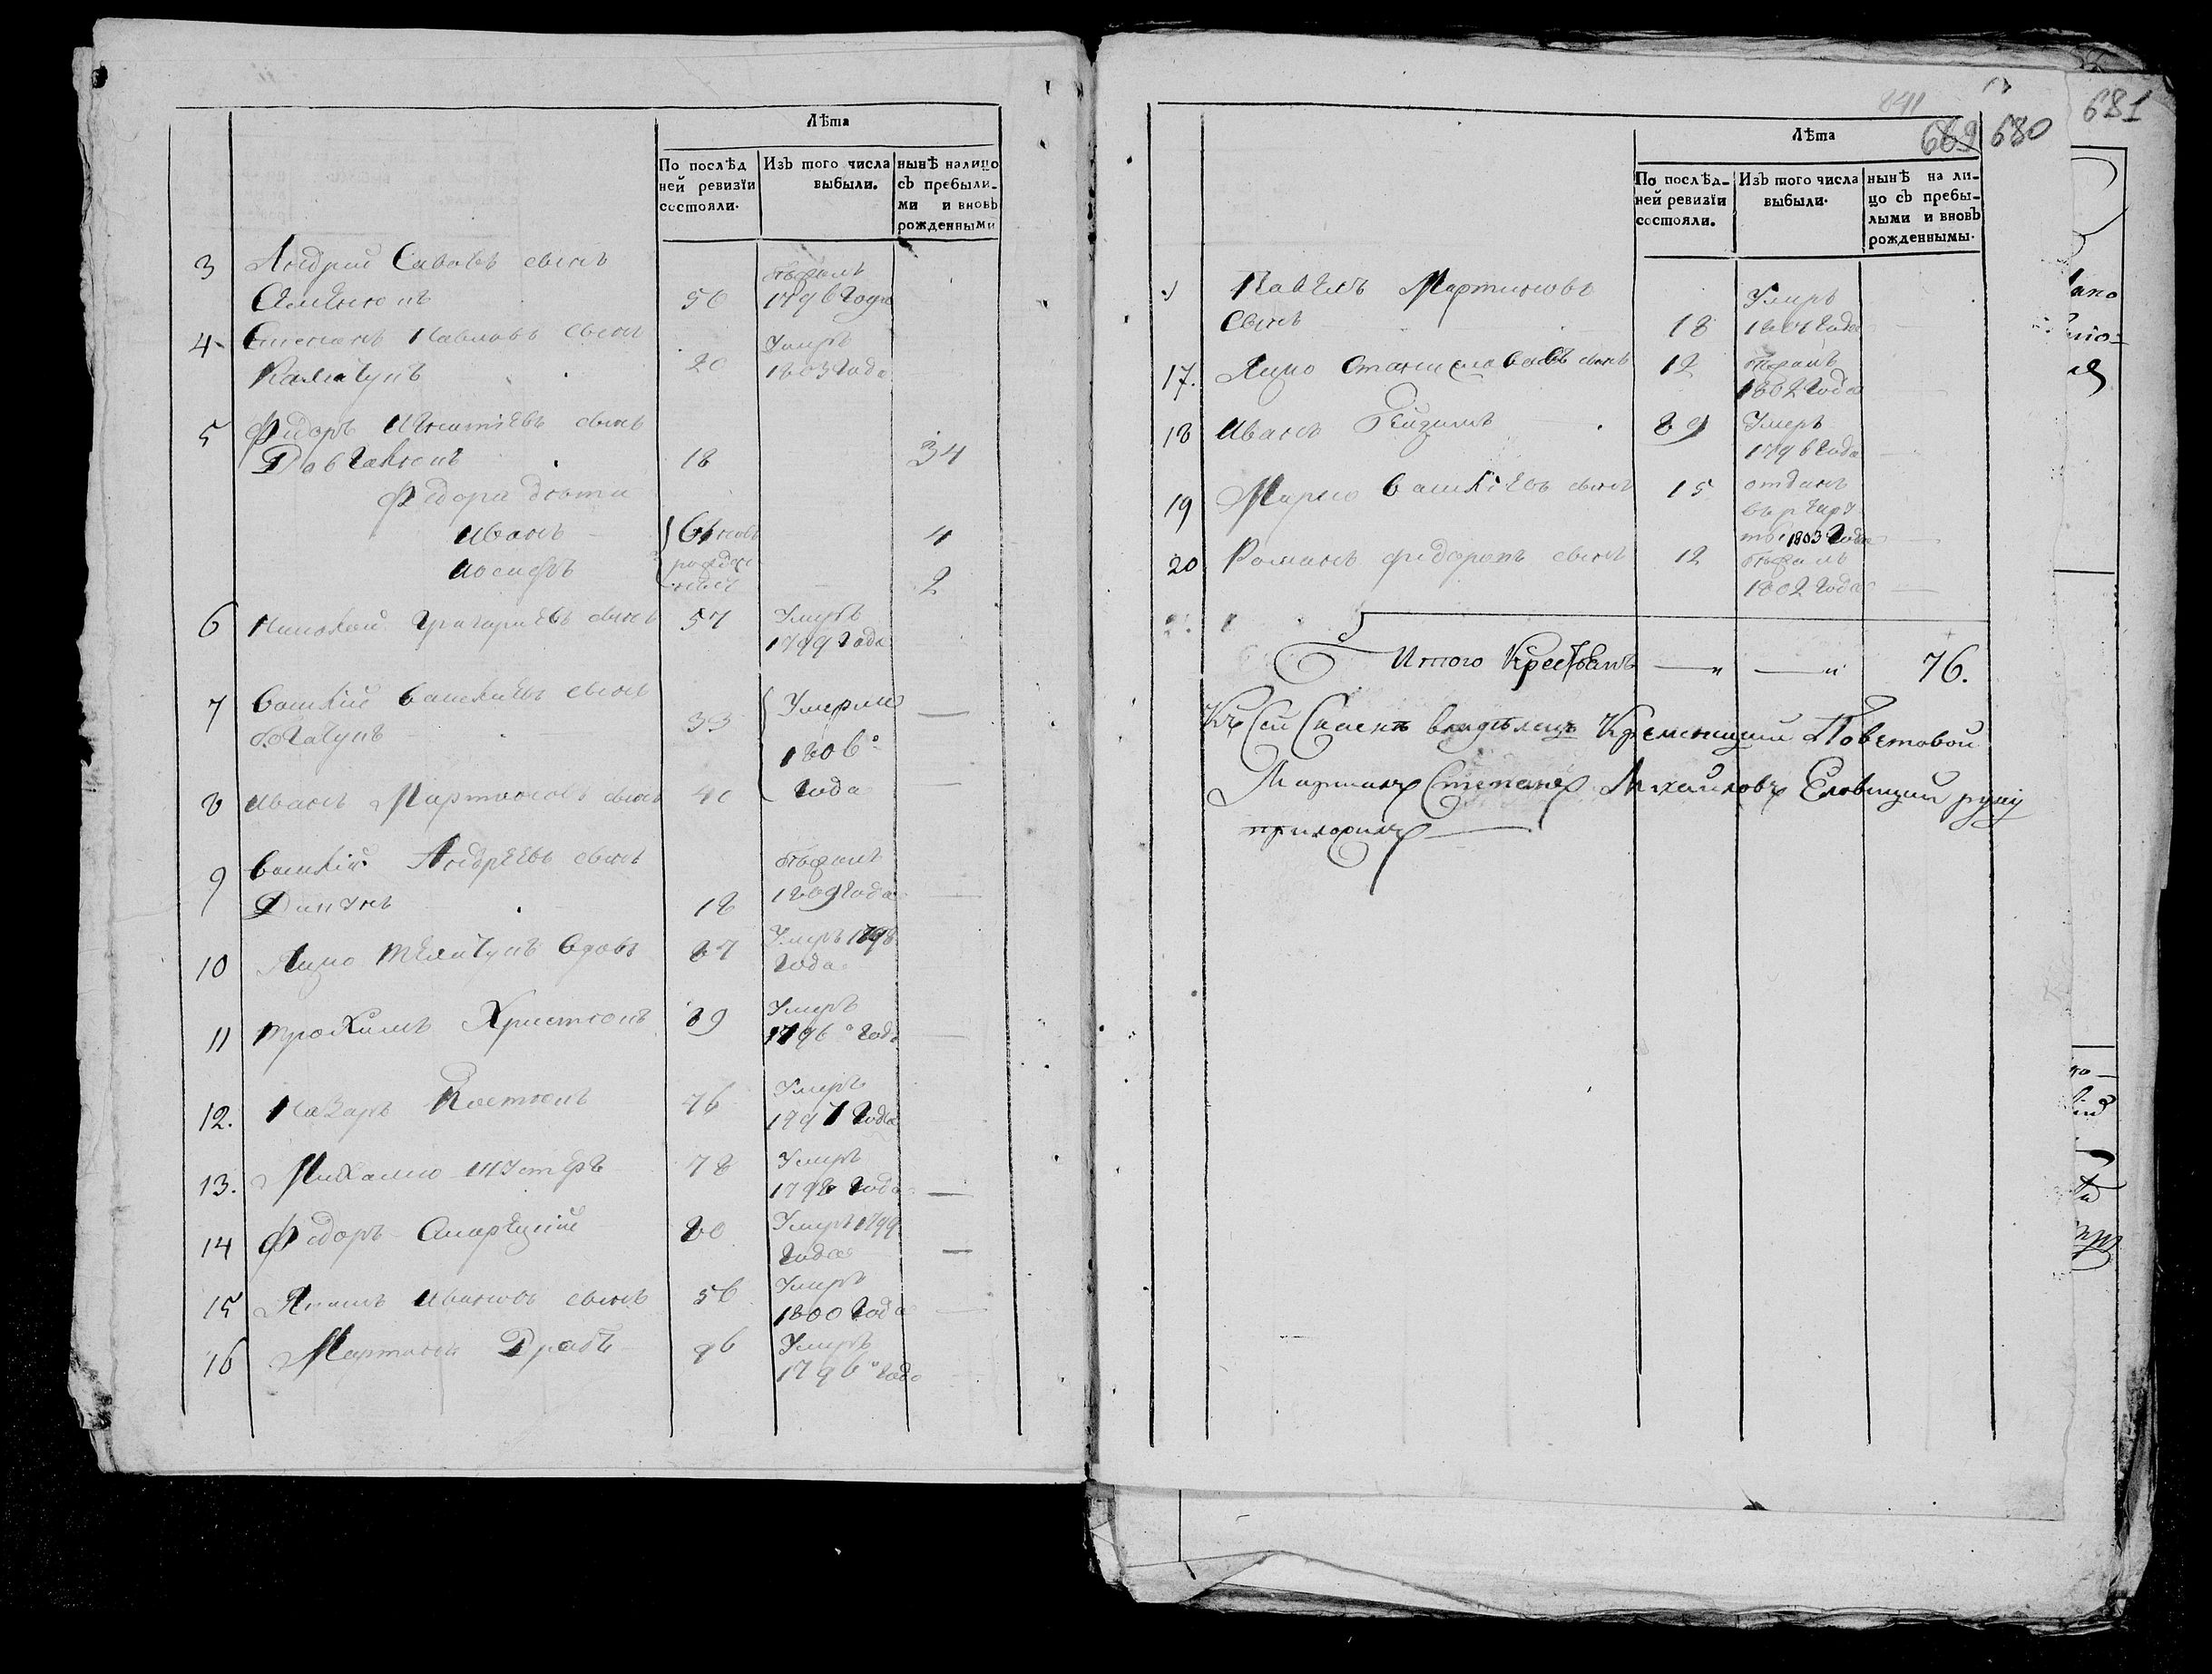 Лѣта
По послѣд
ней ревизїи
состояли.
Изъ того числа
выбыли.
нынѣ налицо
съ пребыли-
ми и вновь
рожденными
3 Андрей Савовъ сынъ
50
бѣжалъ
1796 года
4. Степанъ Павловъ сынъ
20
Умеръ
1803 года
5 Федоръ сынъ
18 34
Федора дѣти
Иванъ вновь 4
Иосифъ рожден
ные 2
6 Николай Григориевъ сынъ 57 Умеръ
1799 года
7 Василий Василиевъ сынъ
33 Умерли
1806°
года
8 Иванъ Мартиновъ сынъ 40
9 Василий Андреевъ сынъ
18
бѣжалъ
1809 года
10 Яцко 87 Умеръ 1798
года
11 Трохимъ 89 Умеръ
1796° года
12. Назаръ Костюкъ 76 Умеръ
1797 года
13. Михайло Шустеръ 78 Умеръ
1798 года
14 Федоръ 80 Умеръ 1799
года
15 Якимъ Ивановъ сынъ 56 Умеръ
1800 года
16 Мартинъ Драбъ 96 Умеръ
1796° года
841
689 680
681
Лѣта
По послѣд-
ней ревизїи
состояли.
Изъ того числа
выбыли.
нынѣ на ли-
цо съ пребы-
лыми и вновь
рожденнымы.
Павелъ Мартиновъ
Сынъ 18
Умеръ
1801 года
17. Яцко Станиславовъ сынъ 12 бѣжалъ
1802 года
18 Иванъ 89 Умеръ
1796 года
19 Марко Василиевъ сынъ 15 отданъ
въ рекру
ты 1803 года
20 Романъ Федоровъ сынъ 12 бѣжалъ
1802 года
Итого Крестьянъ 76.
Къ Сей Сказкѣ владѣлецъ Кременецкий Поветовой
Маршалъ Степанъ Михайловъ Еловицкий руку
приложилъ